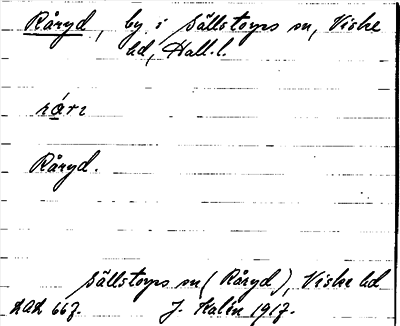 Råryd, by i Sällstorps sn, Viske
hd, Hall. l.
Råryd.
Sällstorps sn (Råryd), Viske hd
J. Kalén 1917.